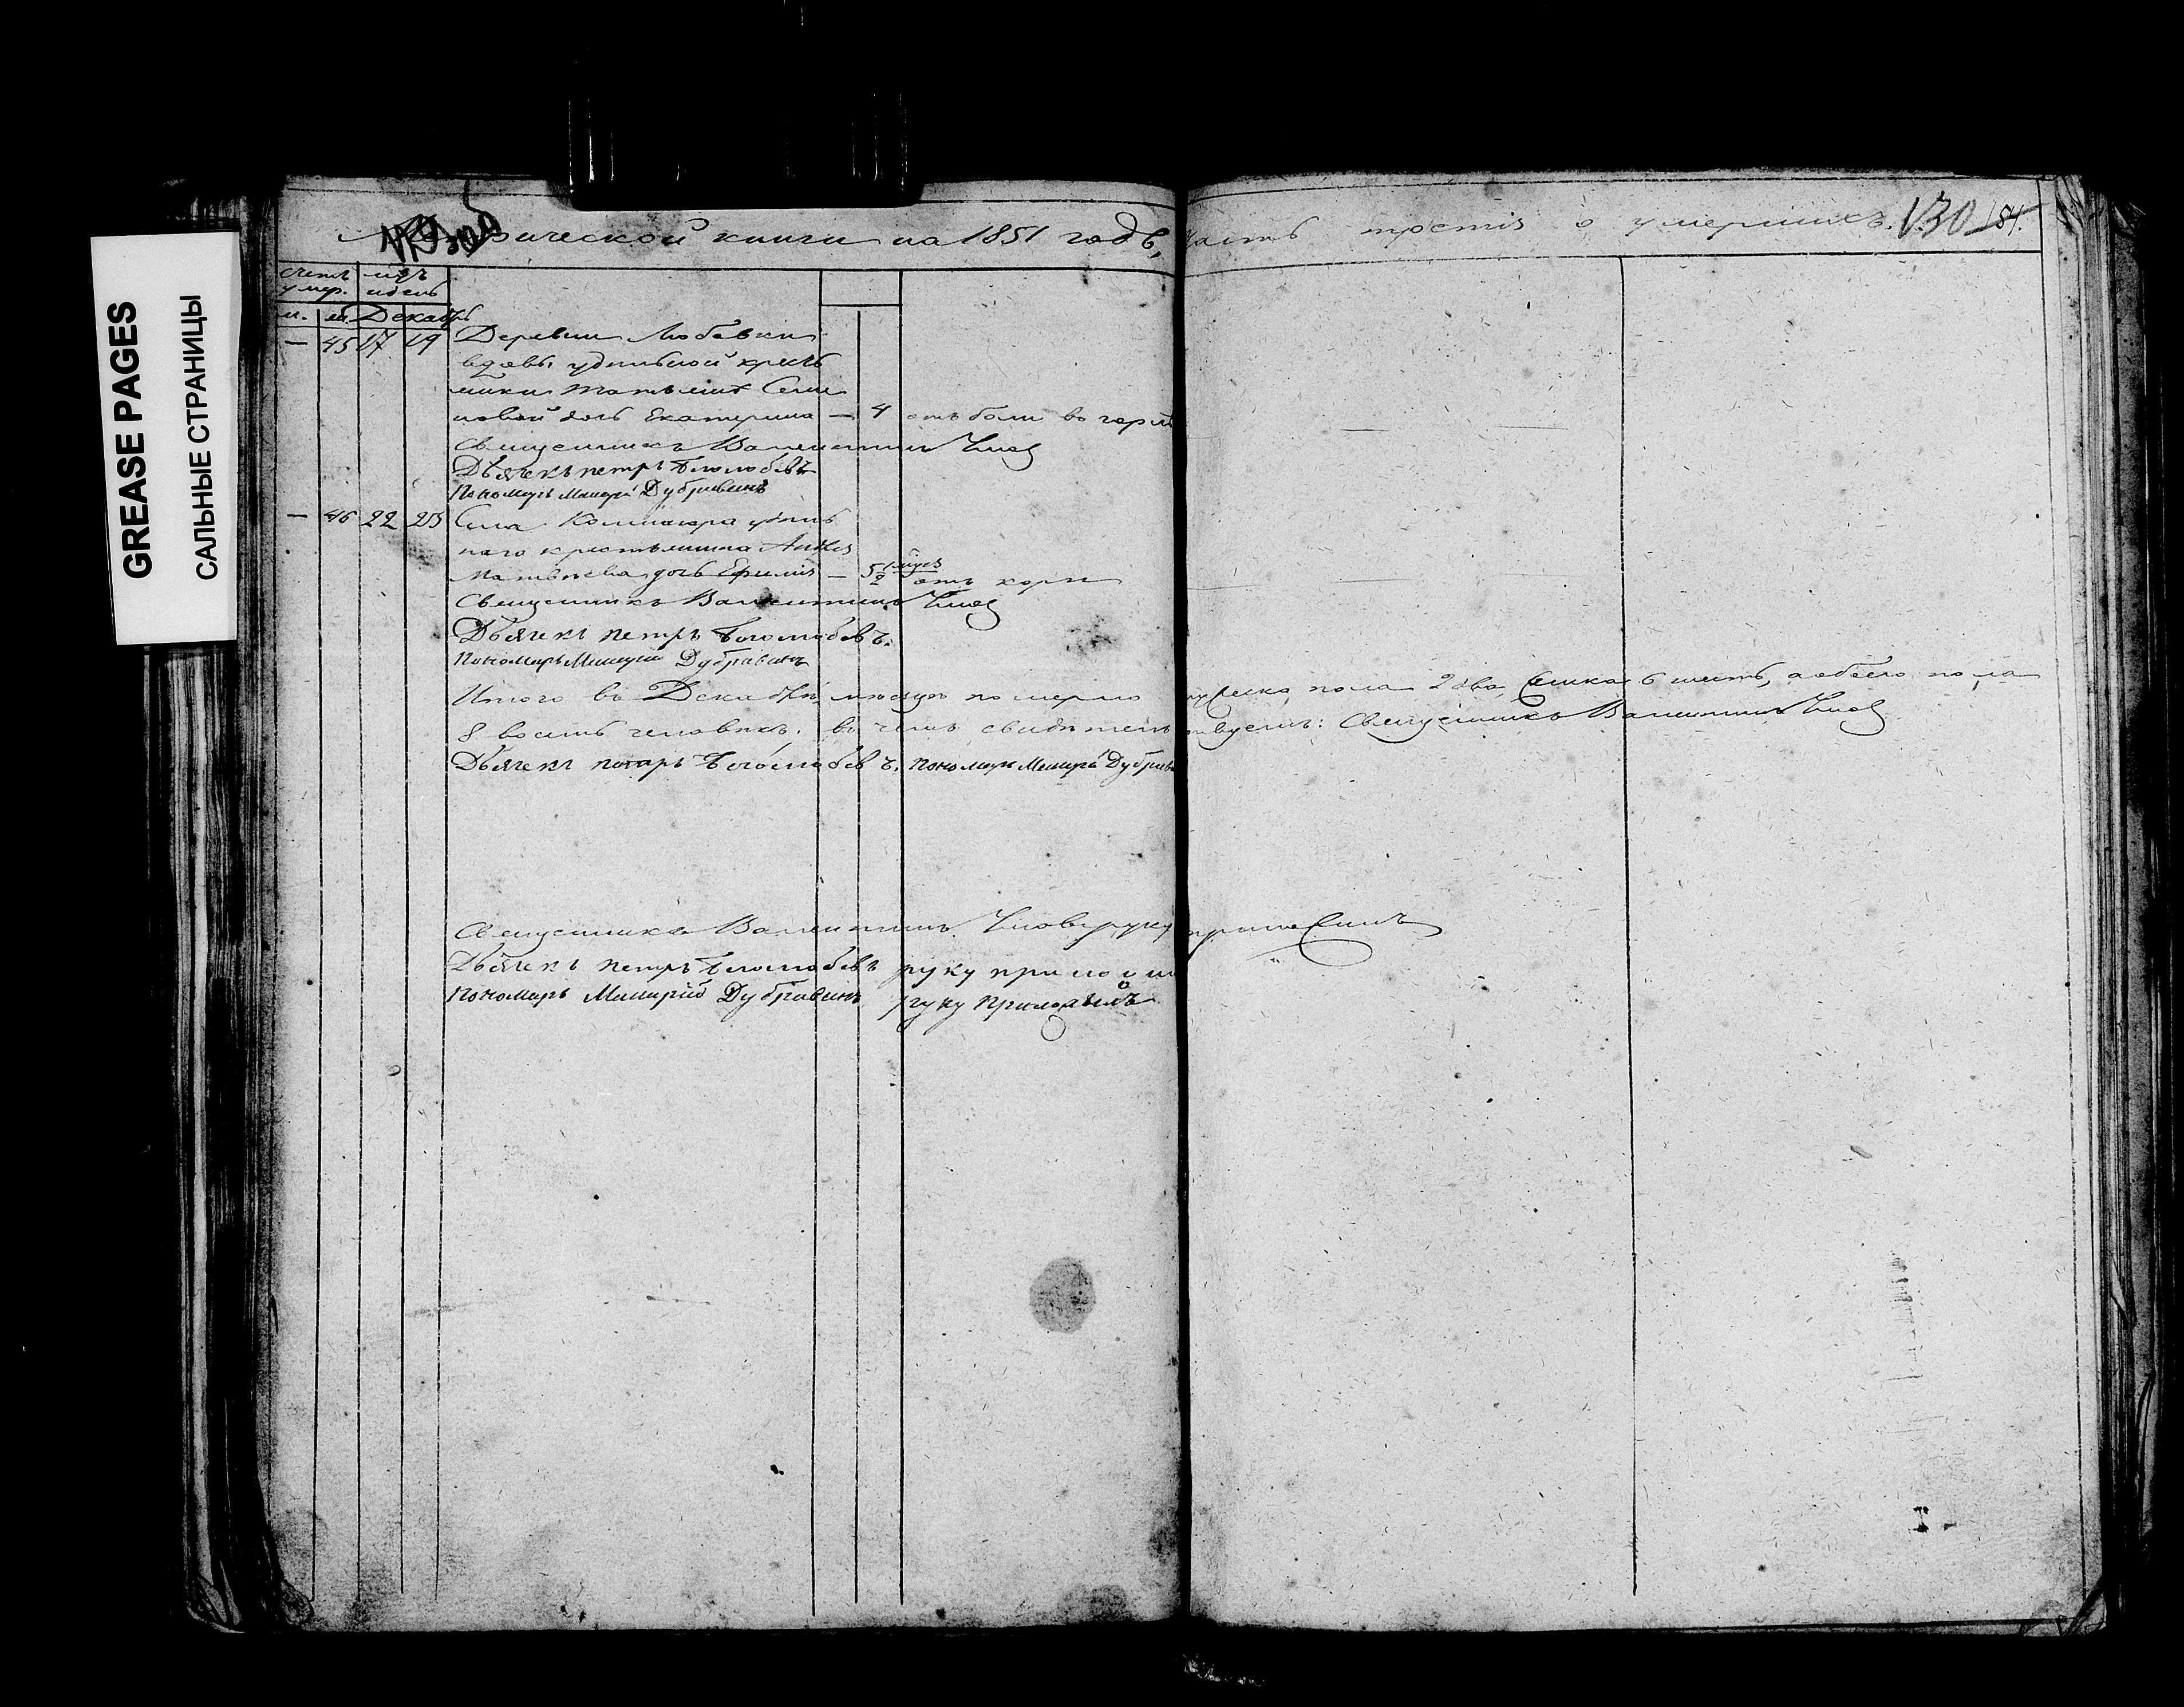 GREASE PAGES
САЛЬНЫЕ СТРАНИЦЫ
ической книги на 1851 годъ, часть третія о умершихъ. 130 154.
счетъ умер. мѣс. и день
м. ж. Декабрь
— 45 17 19 Деревни Любовки
вдовы удѣльной кресть
янки Татьяны Семе
новой дочь Екатерина — 4 отъ боли въ горлѣ
Священникъ Валентинъ
Дьячекъ петръ Боголюбовъ
Пономарь Дубравинъ
— 46 22 25 Села удѣль
наго крестьянина
Матвѣева дочь — 5½ отъ кори
Священникъ Валентинъ
Дьячекъ петръ Боголюбовъ.
Пономарь Дубравинъ
Итого въ Декабрѣ мѣсяцѣ померло мужеска пола 2 два, женска 6 шесть, а обоего пола
8 восемь человѣкъ. въ чемъ свидѣтельствуемъ: Священникъ Валентинъ
Дьячекъ петръ Боголюбовъ. Пономарь Дубравинъ
Священникъ Валентинъ руку приложилъ
Дьячекъ петръ Боголюбовъ руку приложи
Пономарь Дубравинъ руку приложилъ